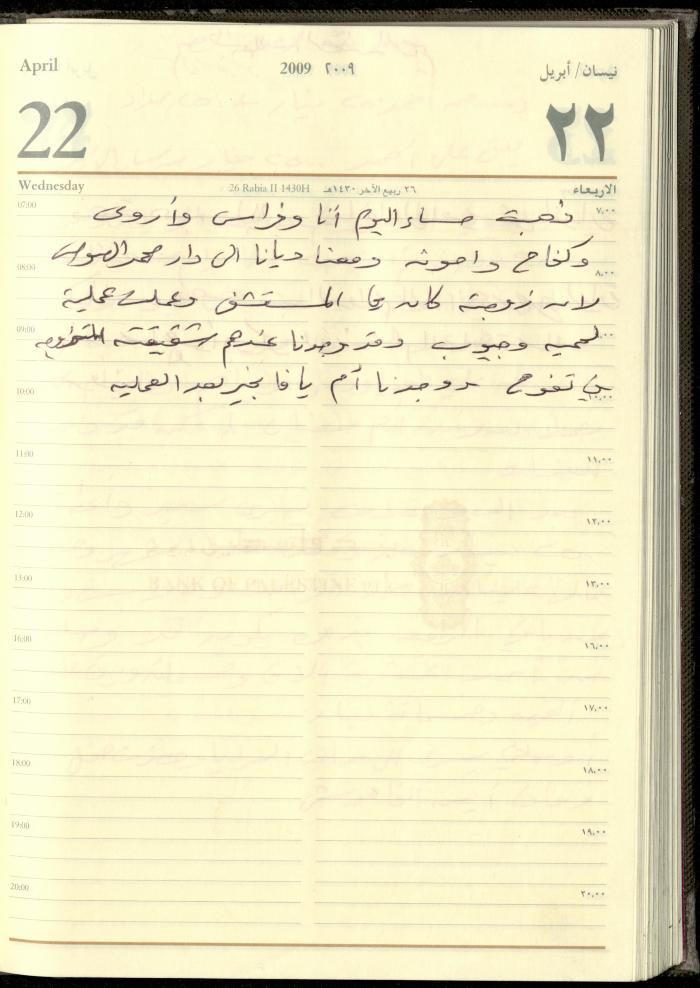 April
2009 ٢٠٠٩
نيسان/ أبريل
22
٢٢
Wednesday
26 Rabia II 1430H ٢٦ ربيع الآخر ١٤٣٠هـ
الاربعاء
07:00 ٧,٠٠
ذهبت مساء اليوم أنا وفراس وأروى
وكفاح وا ومعنا ديانا الى دار محمد
08:00 ٨,٠٠
لان زوجته كانت في المستشفى وعملت عملية
09:00
لحمية وجيوب وقد وجدنا عندهم شقيقته
10:00 ١٠,٠٠
بني تفوح ووجدنا أم يافا بخير بعد العملية
11:00 ١١,٠٠
12:00 ١٢,٠٠
13:00 ١٣,٠٠
BANK OF PALESTINE
16:00 ١٦,٠٠
17:00 ١٧,٠٠
18:00 ١٨,٠٠
19:00 ١٩,٠٠
20:00 ٢٠,٠٠